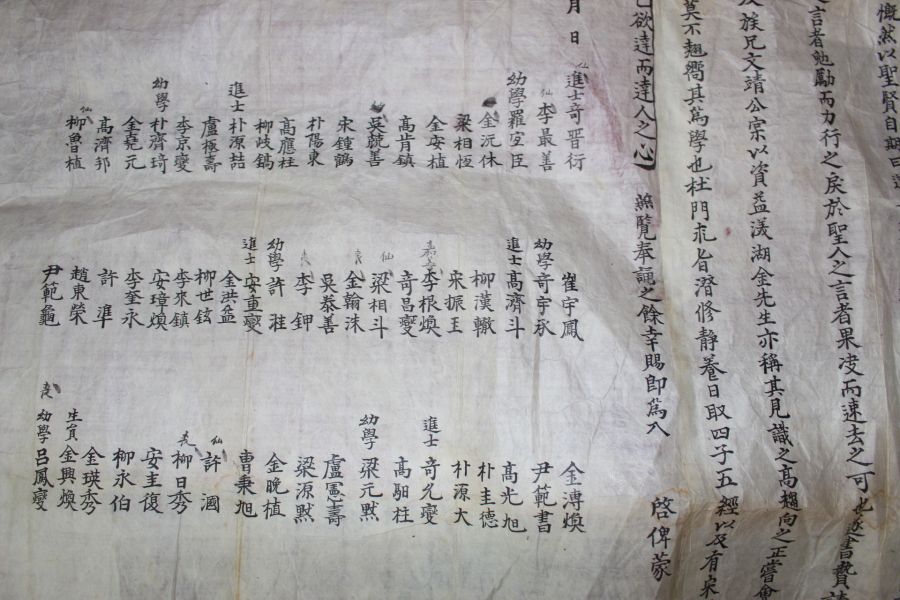 慨然以聖賢自期曰
言者勉勵而力行之戾於聖人之言者果決而速去之可也遂書贊
族兄文靖公宗以資益渼湖金先生亦稱其見識之高趨向之正嘗會
莫不翹嚮其篤學也杜門求旨潛修靜養日取四子五經以及有宋
欲達而達人之心無覽奉誦之餘幸賜卽爲入啓俾蒙
月日
仙進士奇晋衍
仙李最善
幼學羅宝臣
金沅休
梁相恒
金安植
高肯鎮
吳兢善
宋鐘鶴
朴陽東
高應柱
柳岐鎬
進士朴源喆
盧極壽
李京燮
幼學朴齊琦
金堯元
高濟邦
仙柳魯植
崔宇鳳
幼學奇宇承
進士高濟斗
柳漢轍
宋振王
李根煥
奇昌燮
仙梁相斗
金翰洙
吳泰善
李鉀
幼學許
進士安重燮
金洪益
柳世鉉
李來鎮
安璋煥
李奎永
許準
趙東榮
尹範龜
金溥煥
尹範書
高光旭
朴圭德
朴源大
進士奇允燮
高馹柱
幼學梁元默
盧憲壽
梁源默
金晚植
曹秉旭
仙許國
柳日秀
安圭復
柳永伯
金瑛秀
生員金興煥
幼學呂鳳燮